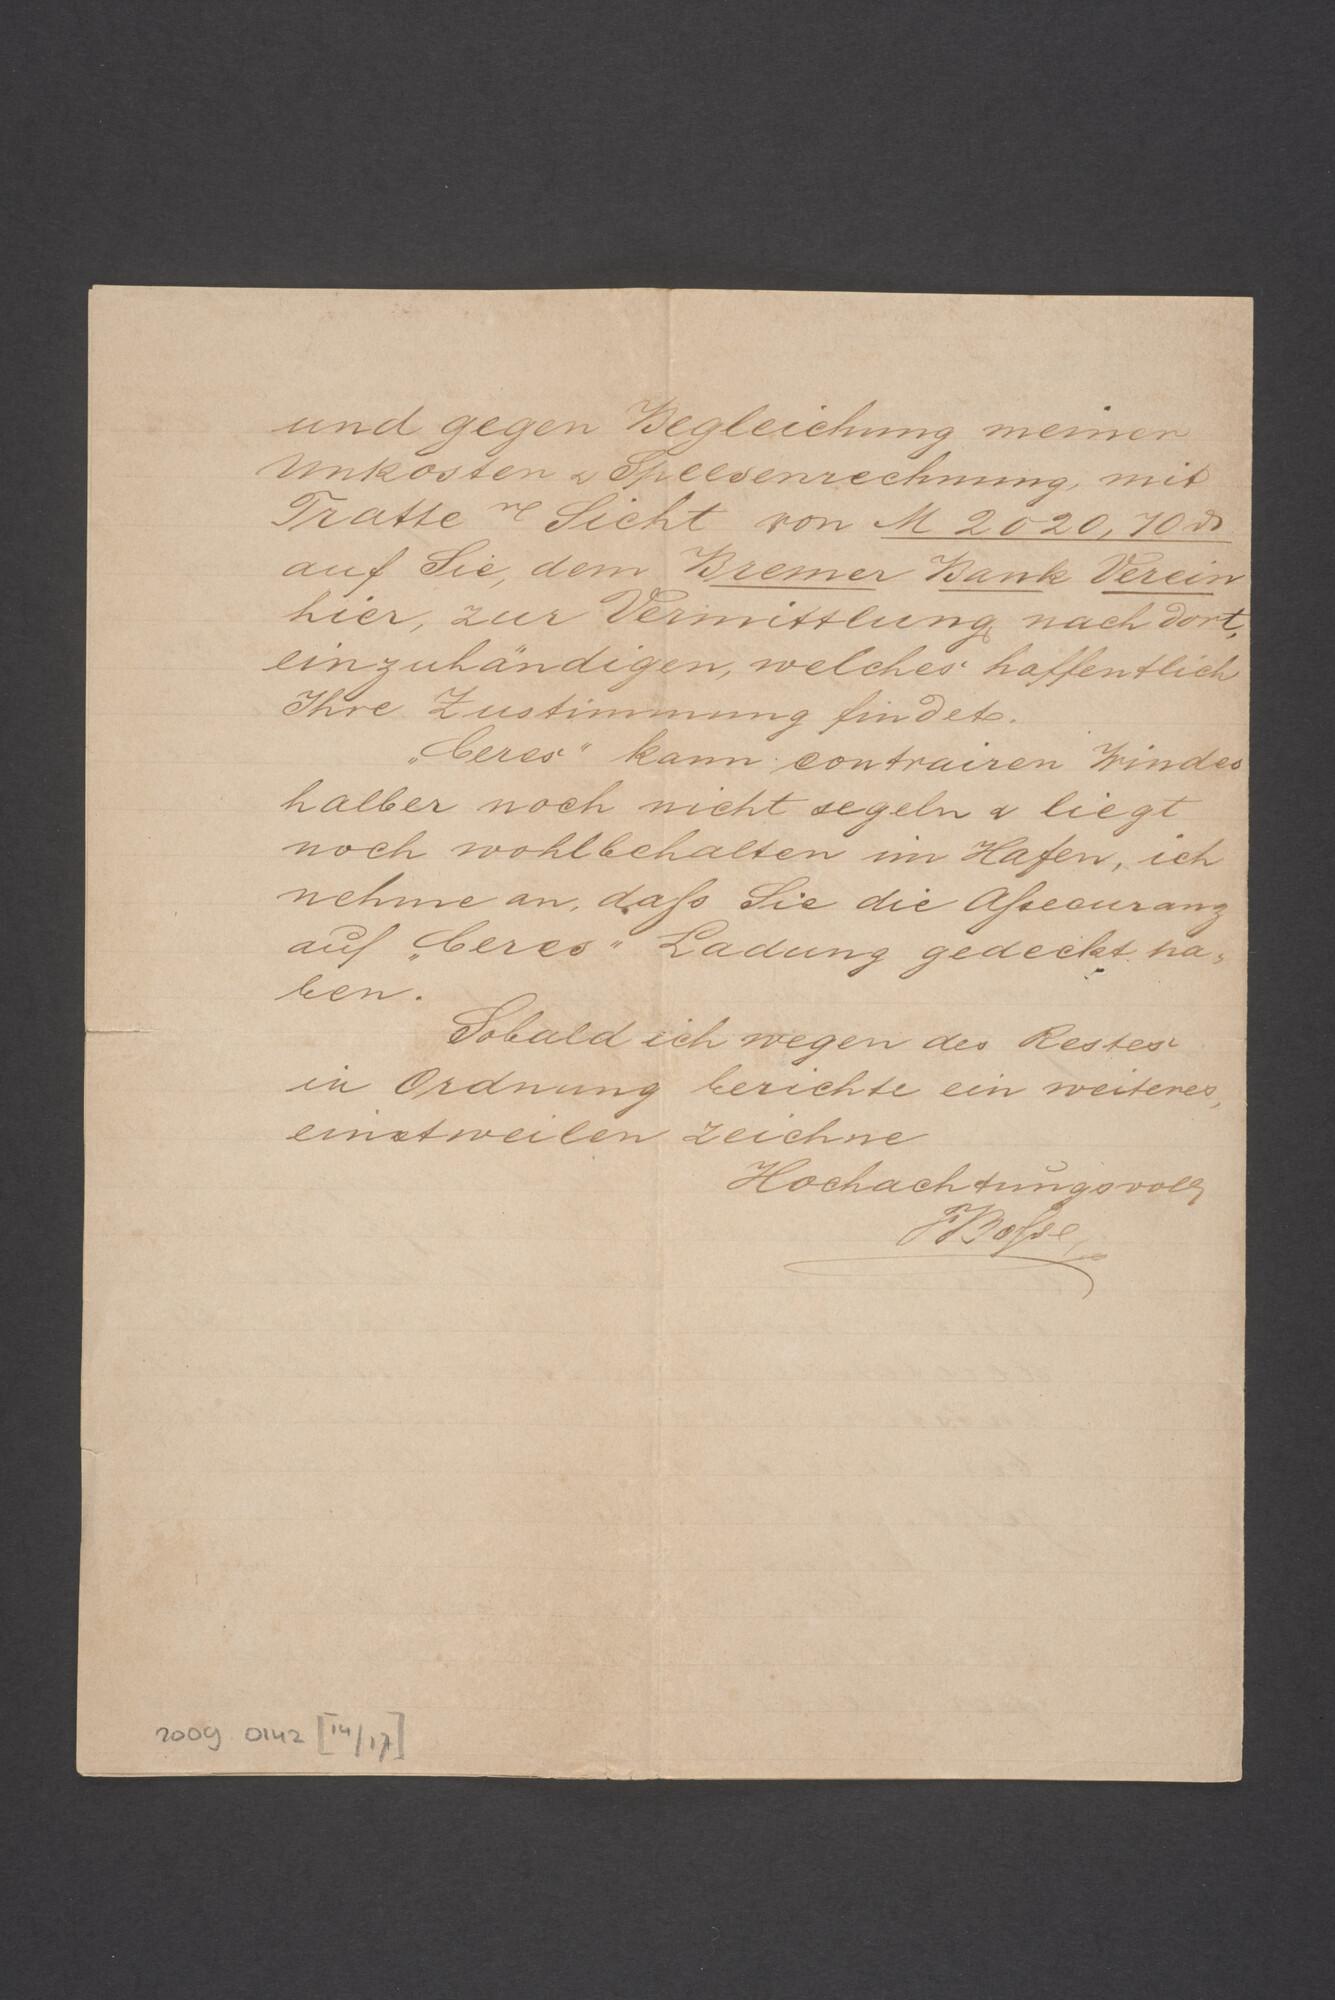 und gegen Begleichung meiner
Unkosten & Speesenrechnung, mit
Tratte Sicht von M 2020,70 d
auf Sie, dem Bremer Bank Verein
hier, zur Vermittlung nach dort,
einzuhändigen, welches hoffentlich
Ihre Zustimmung findet.
„Ceres" kann contrairen Windes
halber noch nicht segeln & liegt
noch wohlbehalten im Hafen, ich
nehme an, daſs Sie die Aſsecuranz
auf „Ceres" Ladung gedeckt ha-
ben.
Sobald ich wegen des Restes
in Ordnung berichte ein weiteres,
einstweilen zeichne
Hochachtungsvoll
F Boſse
2009 0142 [14/17]